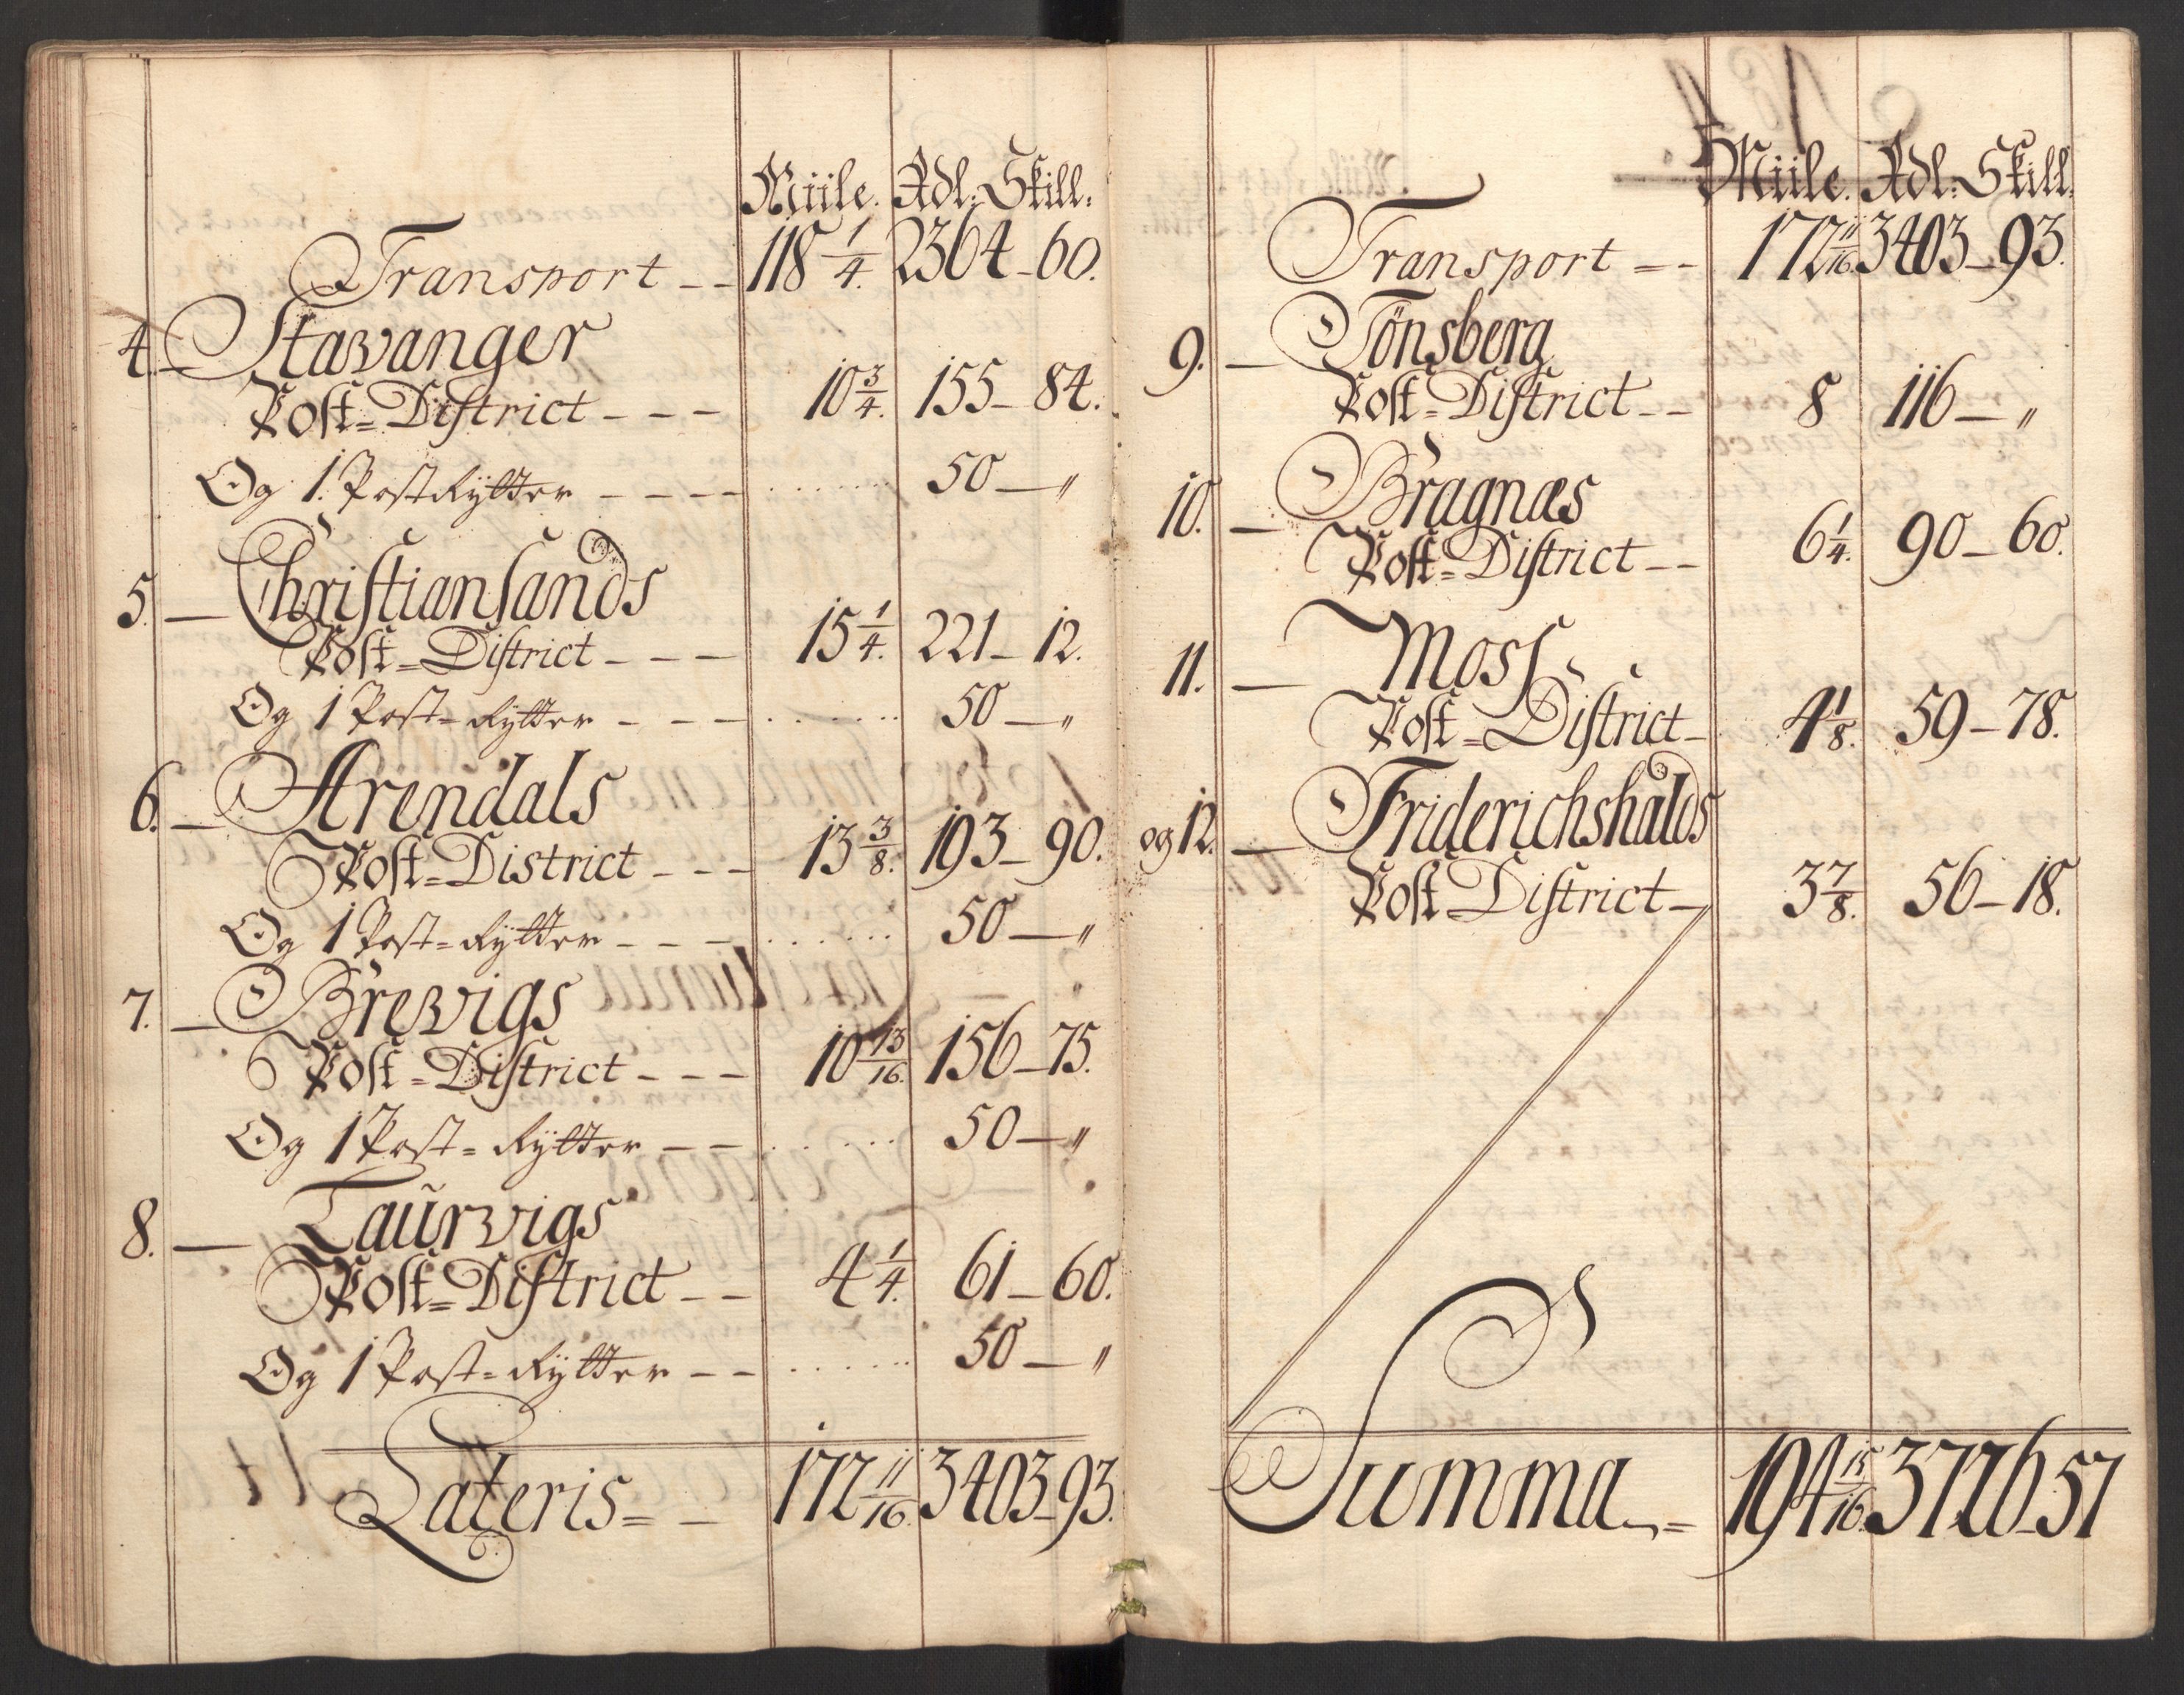 Miile. Rdl: Skill:
Transport -- 118 1/4. 2364 - 60.
4. Stavanger
Post=District --- 10 3/4. 155 - 84.
Og 1. Post Rÿtter ---- 50 - "
5. Christiansands
Post=District --- 15 1/4. 221 - 12.
Og 1 Post=Rÿtter --- 50 - "
6. Arendals
Post=District --- 13 3/8. 193 - 90.
Og 1 Post=Rÿtter --- 50 - "
7. Brevigs
Post=District --- 10 13/16. 156 - 75.
Og 1 Post=Rÿtter -- 50 - "
8. Laurvigs
Post=District -- 4 1/4. 61 - 60.
Og 1 Post=Rÿtter -- 50 - "
Lateris = - 172 11/16. 3403 - 93.
Miile. Rdl: Skill:
Transport = - 172 11/16. 3403 - 93.
9. Tönsberg
Post=District -- 8 116 - "
10. Bragnæs
Post=District -- 6 1/4. 90 - 60.
11. Moss
Post=District - 4 1/8. 59 - 78.
og 12. Friderichshalds
Post District - 3 7/8. 56 - 18.
Summa = 194 15/16. 3726 - 57